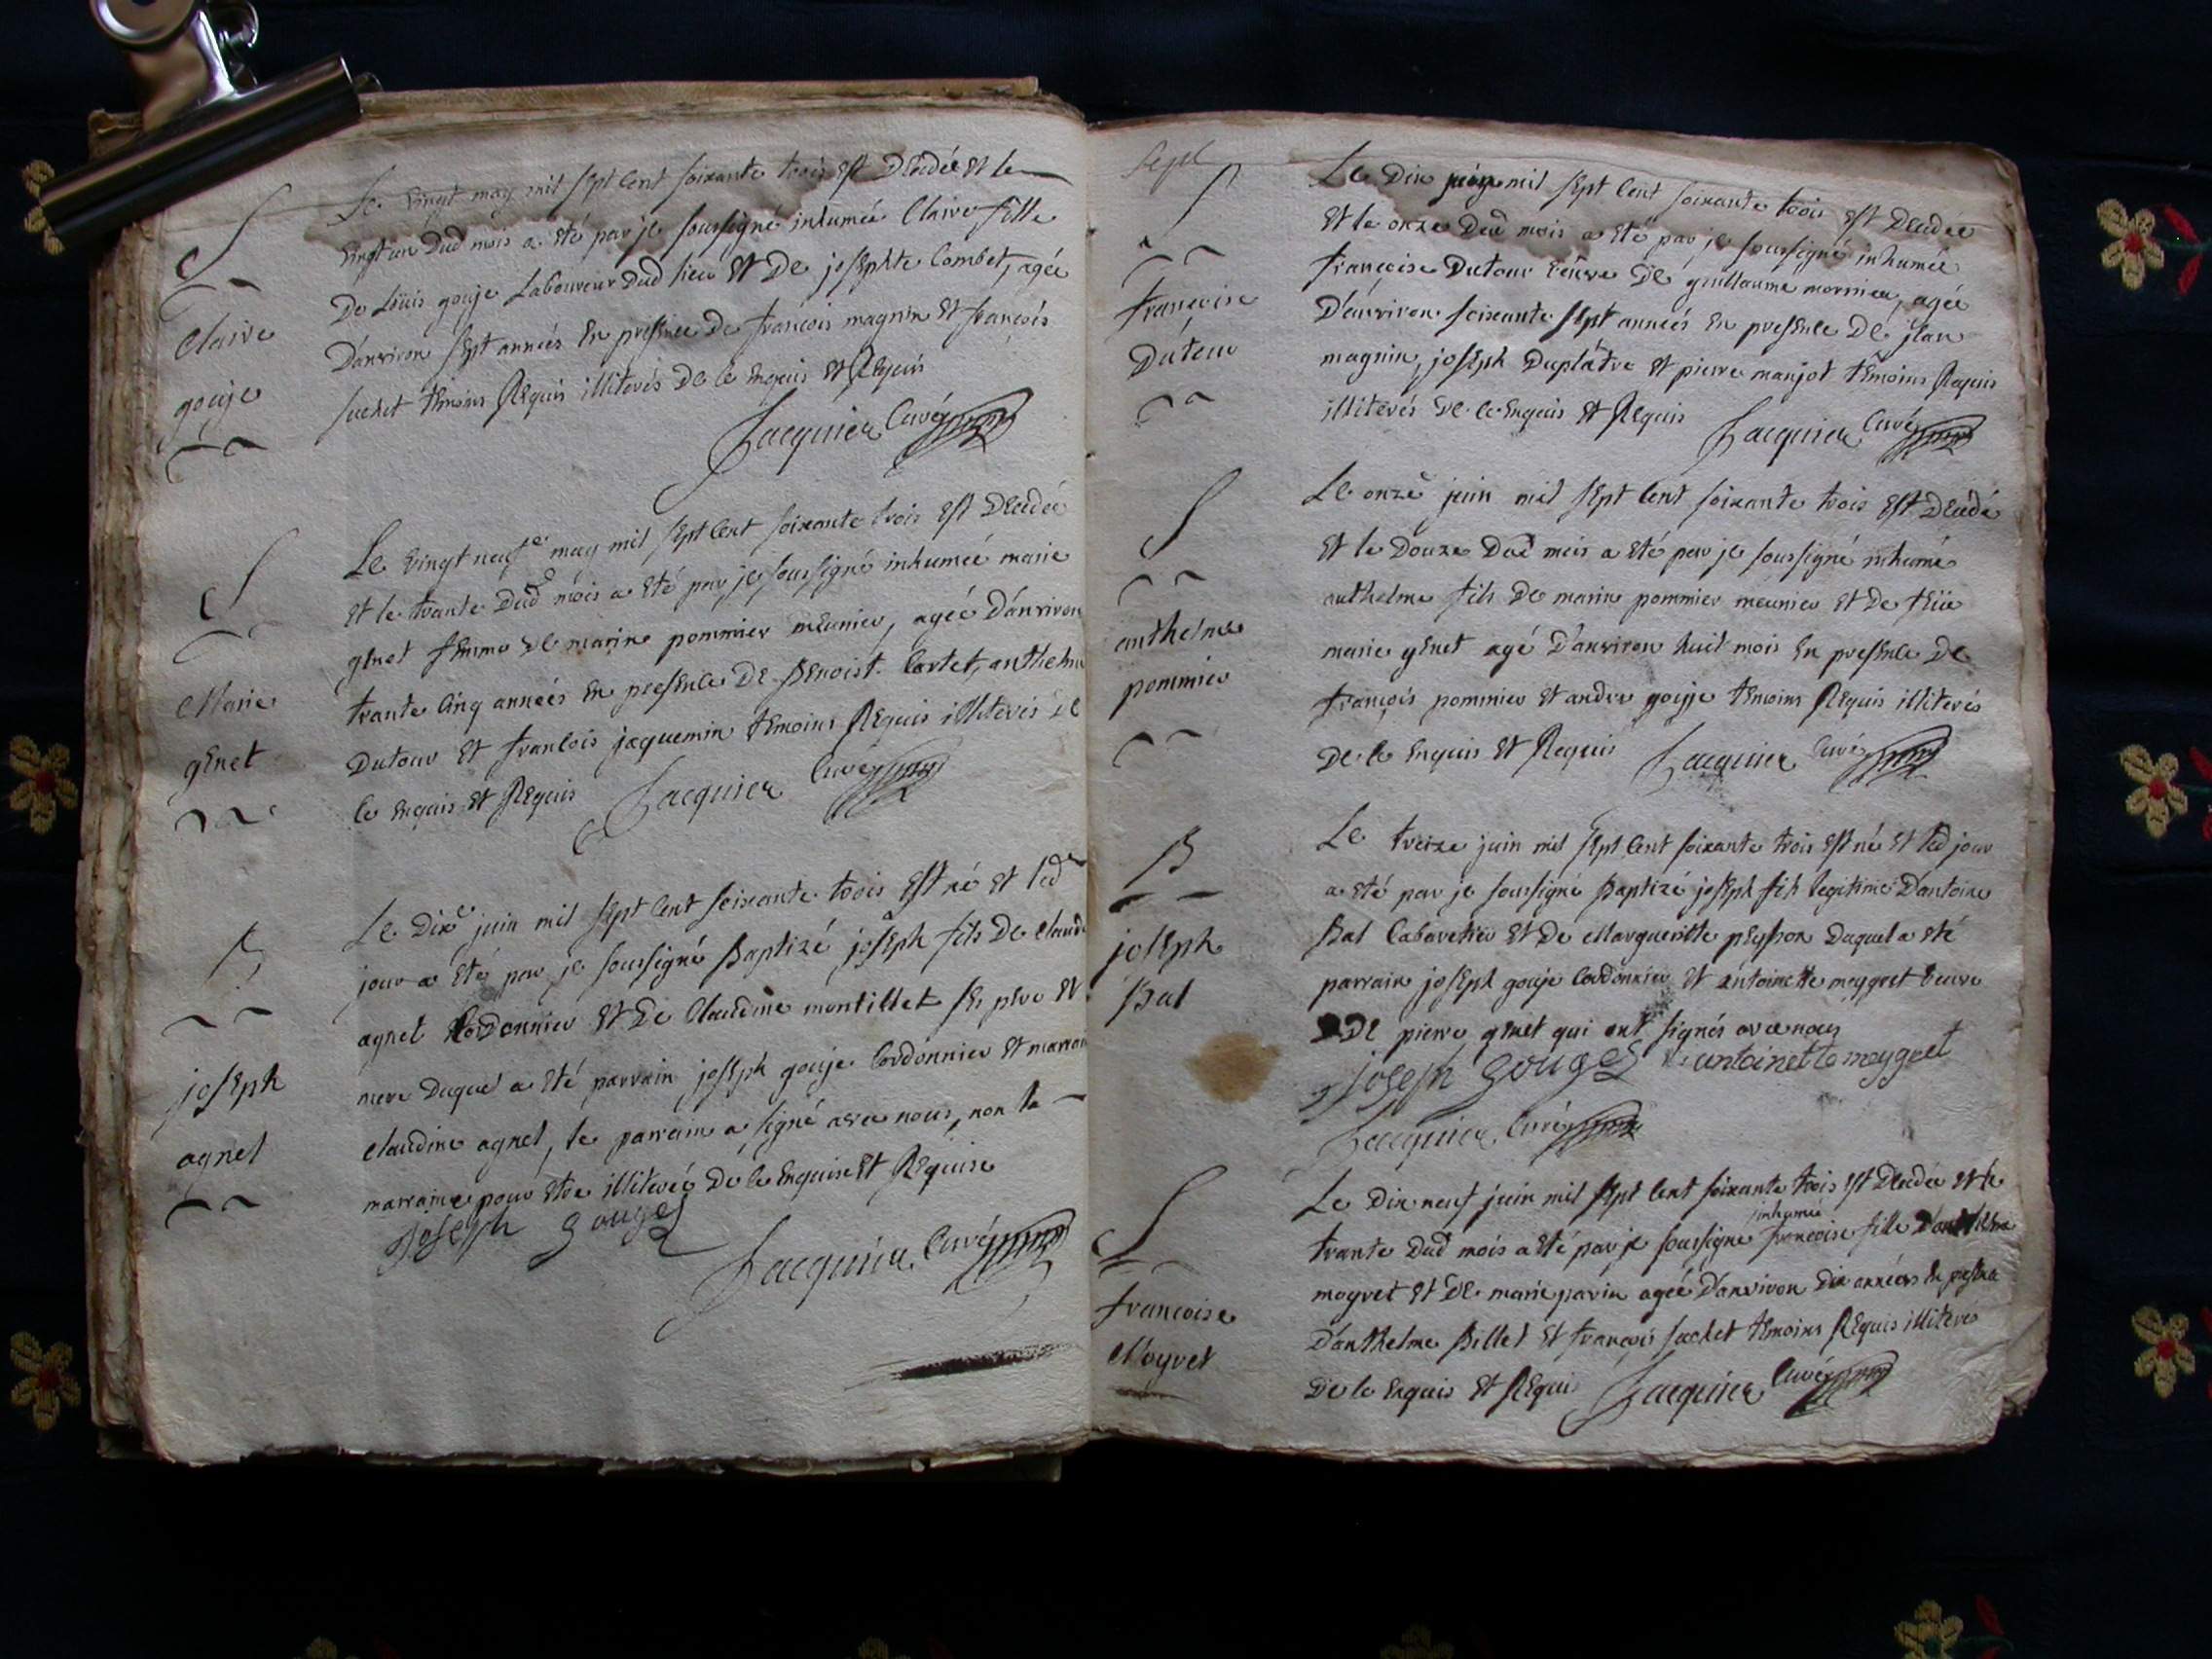 S
Claire
gouje
Le vingt may mil sept cent soixante trois est Decedée et le
vingt un Dud mois a été par je soussigné inhumée Claire fille
De Loüis gouje Laboureur Dud lieu et De josephte Combet, agée
D'anviron sept années En presence De francois magnin et françois
suchet temoins Requis illiterés De ce Enquis et Requis
Jacquier Curé
S
Marie
genet
Le vingt neufe may mil sept cent soixante trois est Decedée
et le trante Dud mois a été par je soussigné inhumée marie
genet femme De marin pommier meunier, agée D'anviron
trante cinq années En presence De Benoist Cartet, anthelme
Dutour et francois jaquemin temoins Requis illiterés De
ce Enquis et Requis
Jacquier Curé
B
joseph
agnel
Le Dixe juin mil sept cent soixante trois est né et led
jour a été par je soussigné Baptizé joseph fils De claude
agnel Cordonnier et De Claudine montillet ses pere et
mere Duquel a été parrain joseph gouje Cordonnier et marraine
claudine agnel, le parrain a signé avec nous, non la
marraine pour étre illiterée De ce Enquise et Requise
Joseph gouges
Jacquier Curé
Sept
S
francoise
Dutour
Le Dix juin mil sept cent soixante trois est Decedée
et le onze Dud mois a été par je soussigné inhumée
françoise Dutour veuve De guillaume mornieu, agée
D'anviron soixante sept années En presence De jean
magnin, joseph Duplâtre et pierre manjot temoins Requis
illiterés De ce Enquis et Requis
Jacquier Curé
S
anthelme
pommier
Le onze juin mil sept cent soixante trois est Decedé
et le Douze Dud mois a été par je soussigné inhumé
anthelme fils De marin pommier meunier et De feüe
marie genet agé D'anviron huit mois En presence De
françois pommier et andre gouje temoins Requis illiterés
De ce Enquis et Requis
Jacquier Curé
B
joseph
Bal
Le treize juin mil sept cent soixante trois est né et led jour
a été par je soussigné Baptizé joseph fils legitime D'antoine
Bal Cabaretier et De Margueritte peysson Duquel a été
parrain joseph gouje Cordonnier et antoinette meygret veuve
De pierre genet qui ont signés avec nous
joseph gouges antoinette meygret
Jacquier Curé
S
francoise
Moyret
Le Dix neuf juin mil sept cent soixante trois est Decedée et le
inhumée
trante Dud mois a été par je soussigné francoise fille D'anthelme
moyret et De marie pavin agée D'anviron Dix années En presence
D'anthelme Billet et françois suchet temoins Requis illiterés
De ce Enquis et Requis
Jacquier Curé